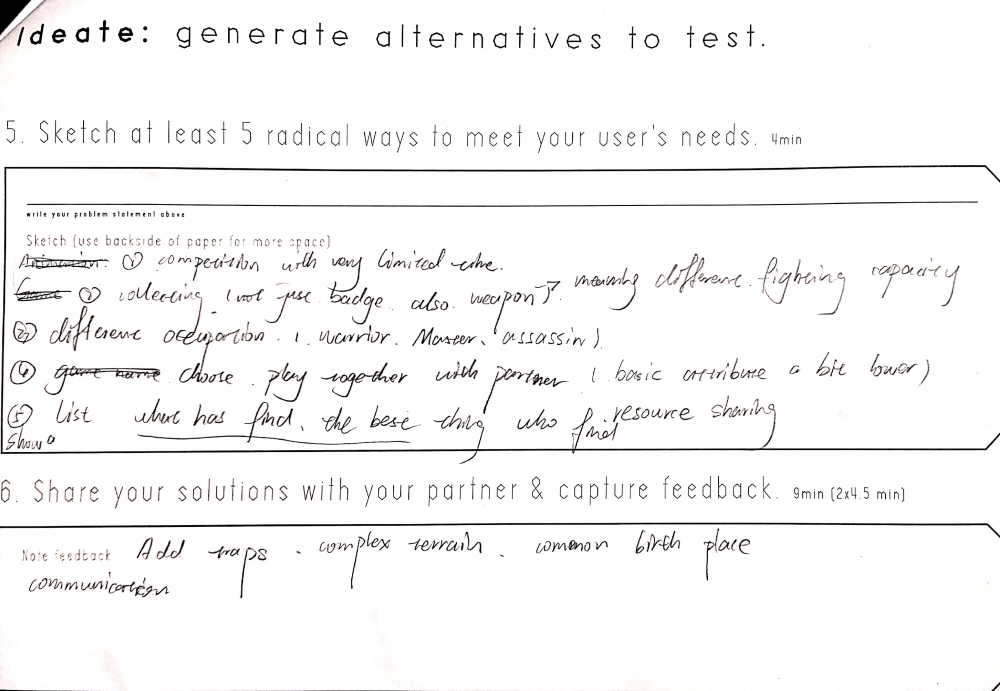 Ideate: generate alternatives to test.
5. Sketch at least 5 radical ways to meet your user's needs. 4min
write your problem statement above
Sketch (use backside of paper for more space)
① competition with very limited time.
② collecting (not just badge. also. weapon) → meaning different fighting capacity
③ different occupation. (warrior. Master. assassin)
④ choose play together with partner (basic attribute a bit lower)
⑤ list what has find, the best thing who find resource sharing
Show a
6. Share your solutions with your partner & capture feedback. 9min (2x4.5 min)
Note feedback Add traps. complex terrain. common birth place
communication